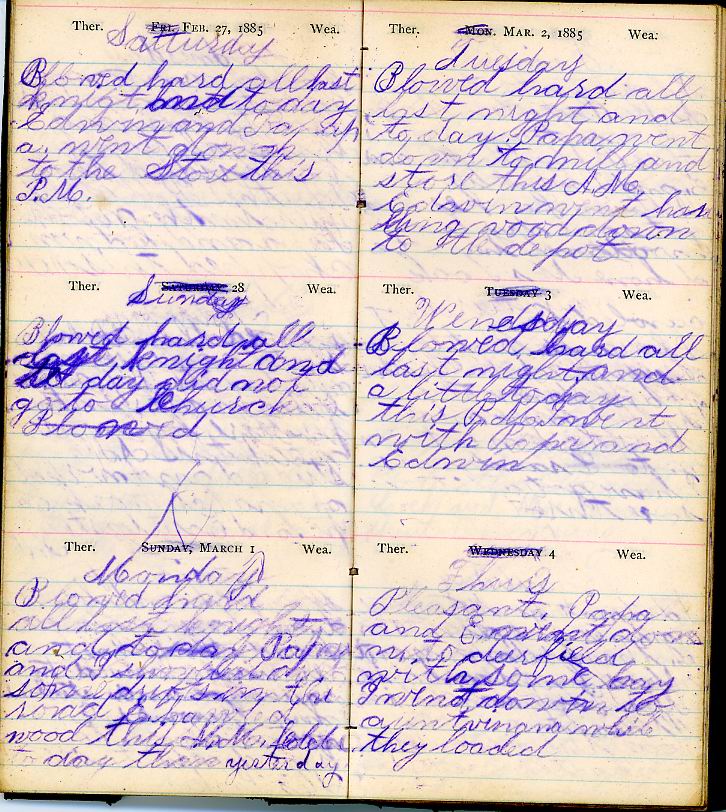 Ther. Fri. Feb. 27, 1885 Wea.
Saturday
Blowed hard all last
knigt and to day
Edwin and Pa
a went
to the Store this
P.M.
Ther. Saturday 28 Wea.
Sunday
Blowed hard all
last knight and
to day did not
go to Church
Blowed
Ther. Sunday, March 1 Wea.
Monday
Blowed
all last
and to day Pa
and I
some
road
wood this A.M.
to day than yesterday
Ther. Mon. Mar. 2, 1885 Wea.
Tuesday
Blowed hard all
last night and
to day Papa went
down to mill and
store this A.M.
Edwin went hau
ling wood down
to the depot
Ther. Tuesday 3 Wea.
Wendsday
Blowed hard all
last night and
a little to day
this P.M. went
with Papa and
Edwin
Ther. Wednesday 4 Wea.
Thurs
Pleasant. Papa
and Edwin down
to deerfield
with some hay
I went down to
aunt while
they loaded